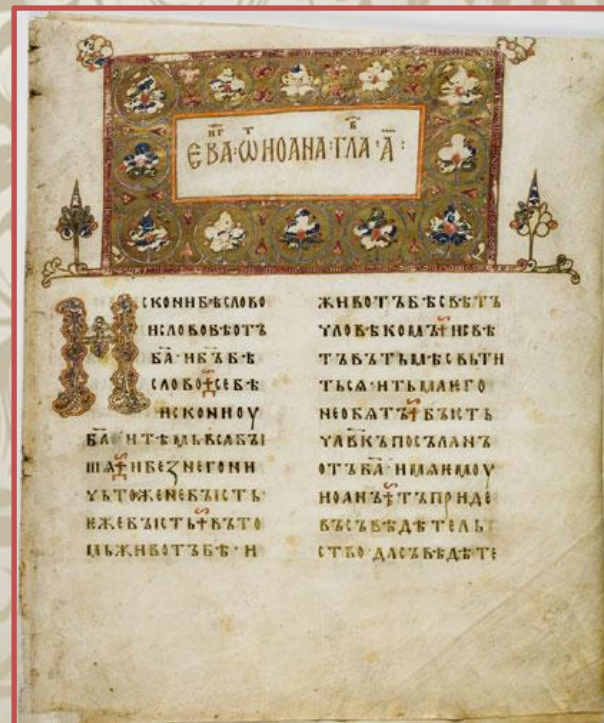 ЕВАⷢ҇Г · Ѿ ИОАНА · ГЛАⷡ҇ · А҃ :
ИСКОНИ БѢ СЛОВО
И СЛОВО БѢ ОТЪ
БА҃ · И БЪ҃ БѢ
СЛОВО ⁜ СЕ БѢ
ИСКОНИ ОУ
БА҃ · И ТѢМЬ ВСА БꙐ
ШѦ ⁜ И БЕꙀ НЕГО НИ
ЧЬТОЖЕ НЕ БꙐСТЬ ·
ѤЖЕ БꙐСТЬ ⁜ ВЪ ТО
МЬ ЖИВОТЪ БѢ · И
ЖИВОТЪ БѢ СВѢТЪ
ЧЛОВѢКОМЪ ⁜ И СВѢ
ТЪ ВЪ ТЬМѢ СВЬТИ
ТЬСѦ · И ТЬМА ѤГО
НЕ ОБѦТЪ ⁜ БꙐСТЬ
ЧЛВ҃КЪ ПОСЪЛАНЪ
ОТЪ БА҃ · ИМѦ ѤМОУ
ИОАНЪ ⁜ ТЪ ПРИДЕ
ВЪ СЪВѢДѢТЕЛЬ
СТВО · ДА СЪВѢДѢТЕ